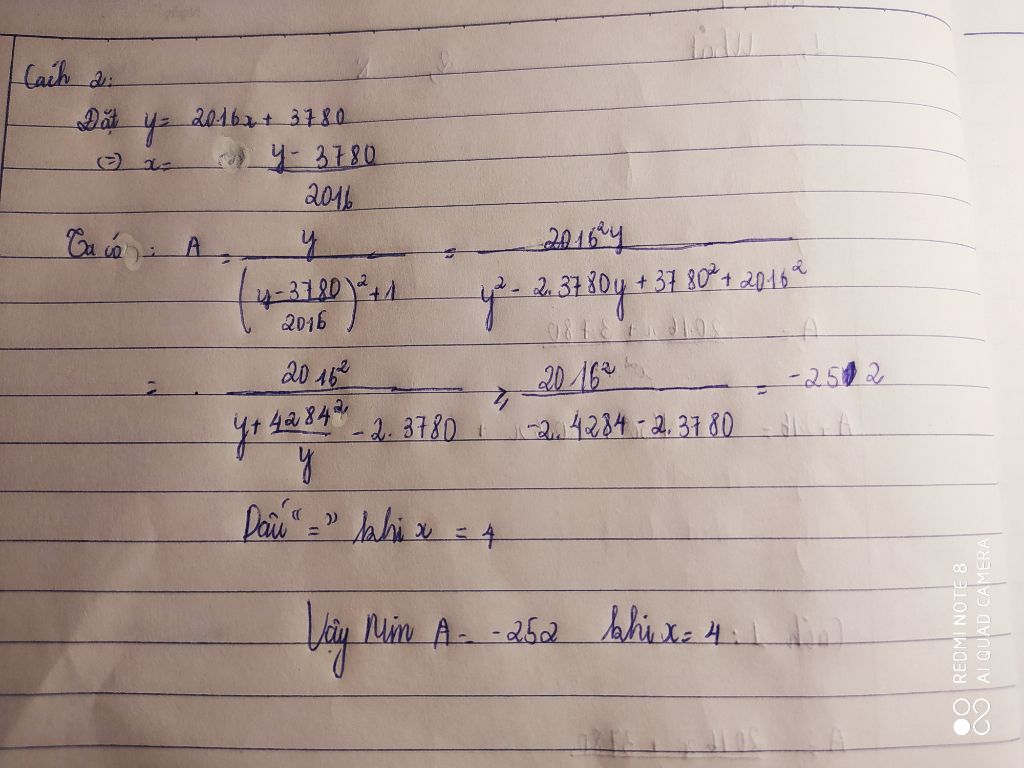 Cách 2:
Đặt y = 2016x + 3780
(=) x = (y - 3780) / 2016
Ta có : A = y / ((y-3780 / 2016)² + 1) = 2016²y / (y² - 2.3780y + 3780² + 2016²)
= . 2016² / (y + 4284²/y - 2.3780) ≥ 2016² / (-2.4284 - 2.3780) = -252
Dấu "=" khi x = 4
Vậy Min A = -252 khi x = 4
REDMI NOTE 8
AI QUAD CAMERA